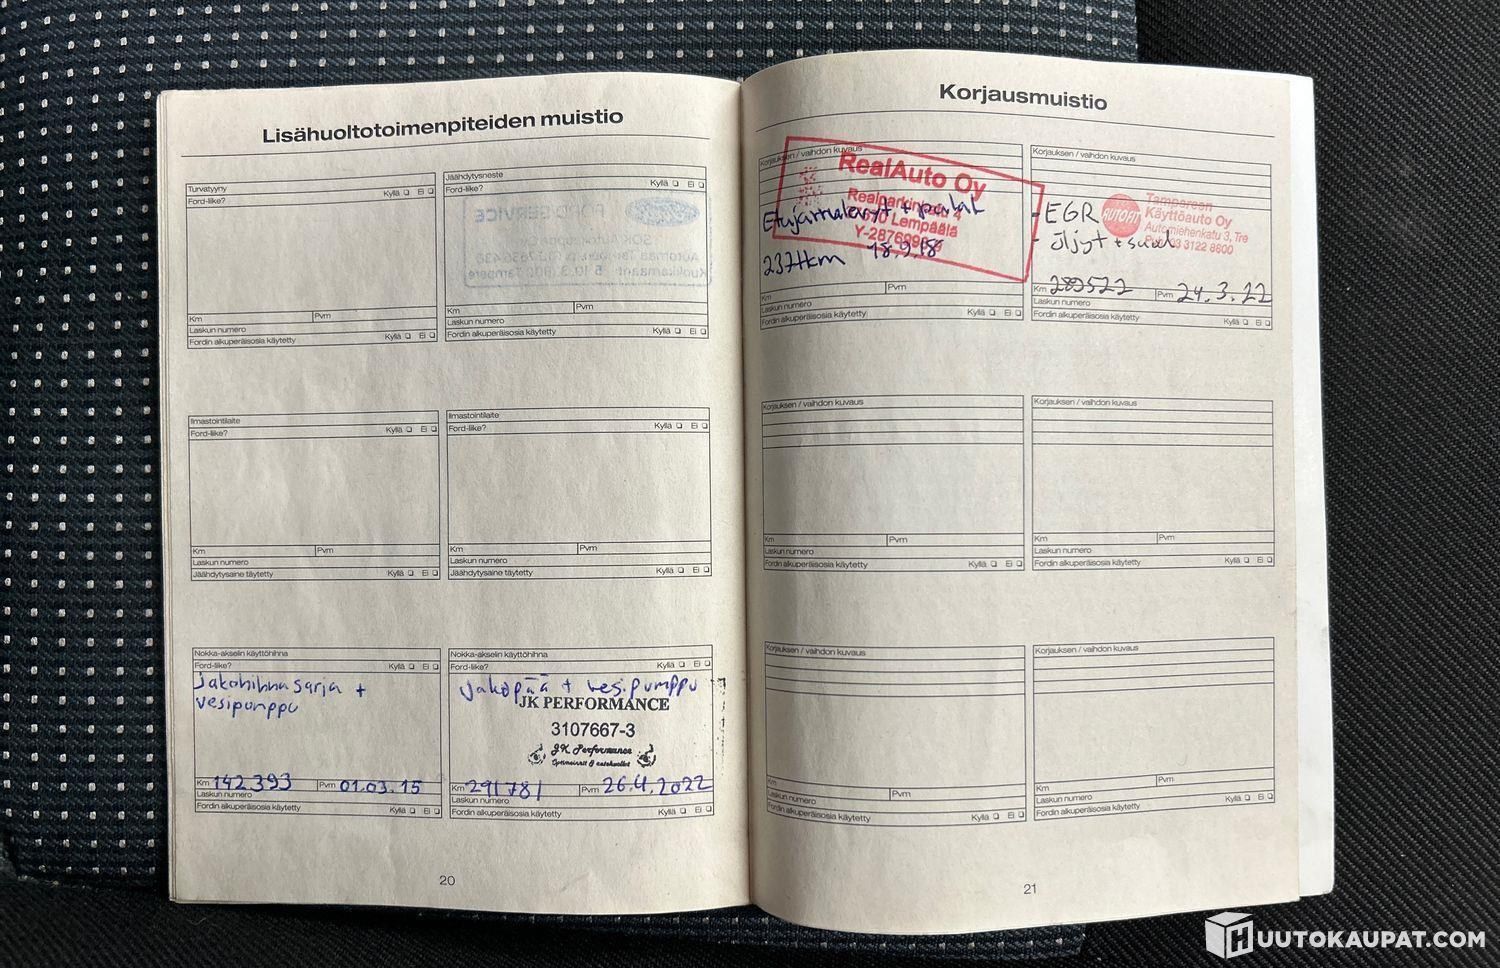 Lisähuoltotoimenpiteiden muistio
Turvatyyny
Kyllä ❏ Ei ❏
Ford-liike?
Km
Pvm
Laskun numero
Fordin alkuperäisosia käytetty Kyllä ❏ Ei ❏
Jäähdytysneste
Ford-like? Kyllä ❏ Ei ❏
FORD SERVICE
Km
Pvm
Laskun numero
Fordin alkuperäisosia käytetty Kyllä ❏ Ei ❏
Ilmastointilaite
Ford-liike? Kyllä ❏ Ei ❏
Km
Pvm
Laskun numero
Jäähdytysaine täytetty Kyllä ❏ Ei ❏
Ilmastointilaite
Ford-liike? Kyllä ❏ Ei ❏
Km
Pvm
Laskun numero
Jäähdytysaine täytetty Kyllä ❏ Ei ❏
Nokka-akselin käyttöhihna
Ford-liike? Kyllä ❏ Ei ❏
Jakohihnasarja +
vesipumppu
Km 142 393 Pvm 01.03.15
Laskun numero
Fordin alkuperäisosia käytetty Kyllä ❏ Ei ❏
Nokka-akselin käyttöhihna
Ford-liike? Kyllä ❏ Ei ❏
Jakopää + vesipumppu
JK PERFORMANCE
3107667-3
JK Performance
Km 291781 Pvm 26.4.2022
Laskun numero
Fordin alkuperäisosia käytetty Kyllä ❏ Ei ❏
20
Korjausmuistio
Korjauksen / vaihdon kuvaus
RealAuto Oy
Realparkinkatu 4
Lempäälä
Etujarrulevyt + palat
237tkm 18.9.18
Km
Pvm
Laskun numero
Fordin alkuperäisosia käytetty Kyllä ❏ Ei ❏
Korjauksen / vaihdon kuvaus
AUTOFIT
Tampereen
Käyttöauto Oy
Automiehenkatu 3, Tre
03 3122 8600
- EGR
- öljyt + suod
Km 282522 Pvm 24.3.22
Laskun numero
Fordin alkuperäisosia käytetty Kyllä ❏ Ei ❏
Korjauksen / vaihdon kuvaus
Km
Pvm
Laskun numero
Fordin alkuperäisosia käytetty Kyllä ❏ Ei ❏
Korjauksen / vaihdon kuvaus
Km
Pvm
Laskun numero
Fordin alkuperäisosia käytetty Kyllä ❏ Ei ❏
Korjauksen / vaihdon kuvaus
Km
Pvm
Laskun numero
Fordin alkuperäisosia käytetty Kyllä ❏ Ei ❏
Korjauksen / vaihdon kuvaus
Km
Pvm
Laskun numero
Fordin alkuperäisosia käytetty Kyllä ❏ Ei ❏
21
HUUTOKAUPAT.COM